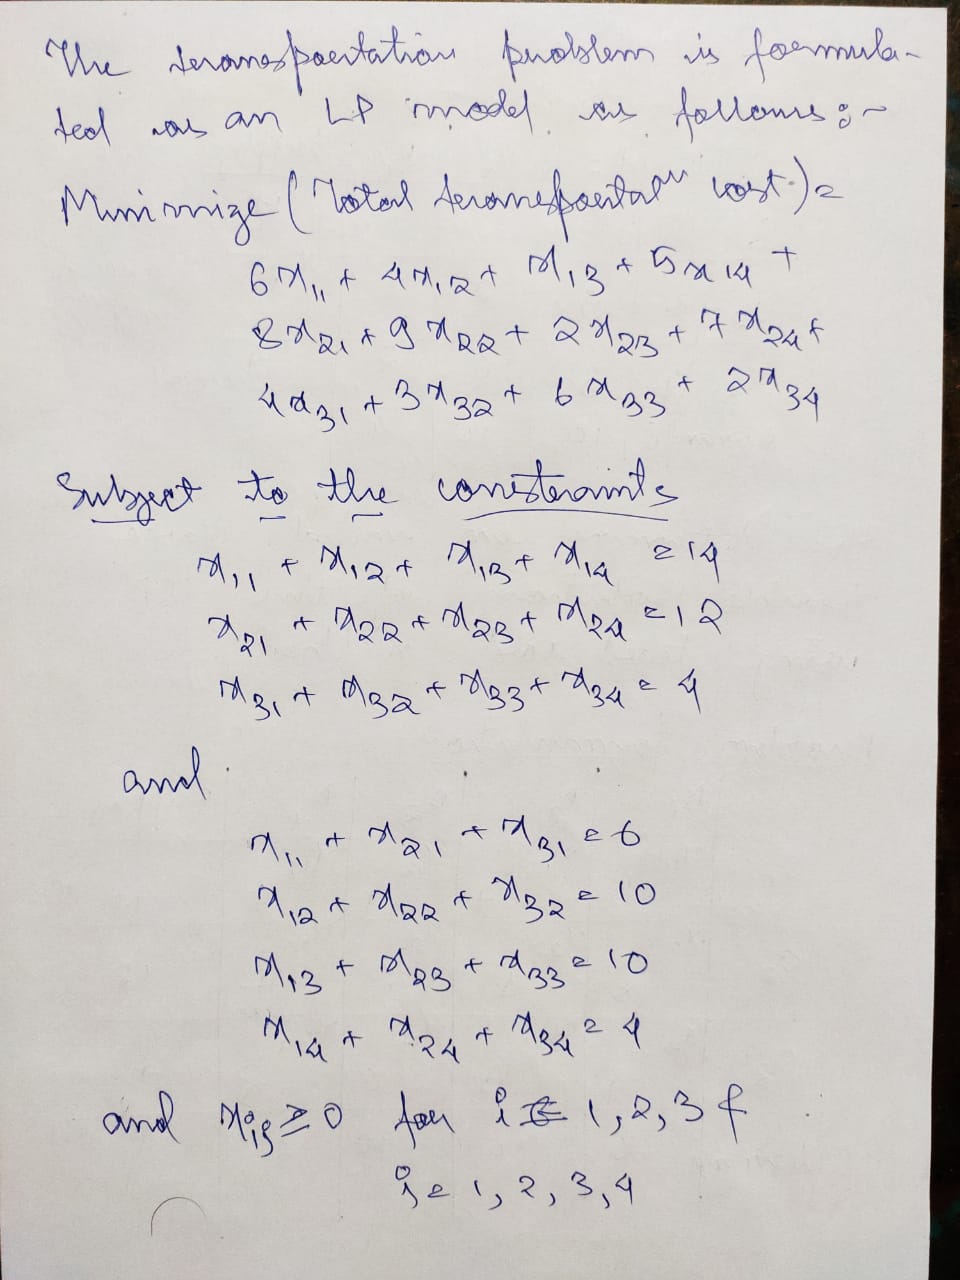 The transportation problem is formula-
ted as an LP model as follows:~
Minimize (Total transportatⁿ cost) =
6x₁₁ + 4x₁₂ + x₁₃ + 5x₁₄ +
8x₂₁ + 9x₂₂ + 2x₂₃ + 7x₂₄ +
4x₃₁ + 3x₃₂ + 6x₃₃ + 2x₃₄
Subject to the constraints
x₁₁ + x₁₂ + x₁₃ + x₁₄ = 14
x₂₁ + x₂₂ + x₂₃ + x₂₄ = 12
x₃₁ + x₃₂ + x₃₃ + x₃₄ = 4
and
x₁₁ + x₂₁ + x₃₁ = 6
x₁₂ + x₂₂ + x₃₂ = 10
x₁₃ + x₂₃ + x₃₃ = 10
x₁₄ + x₂₄ + x₃₄ = 4
and xᵢⱼ ≥ 0 for i = 1, 2, 3 &
j = 1, 2, 3, 4